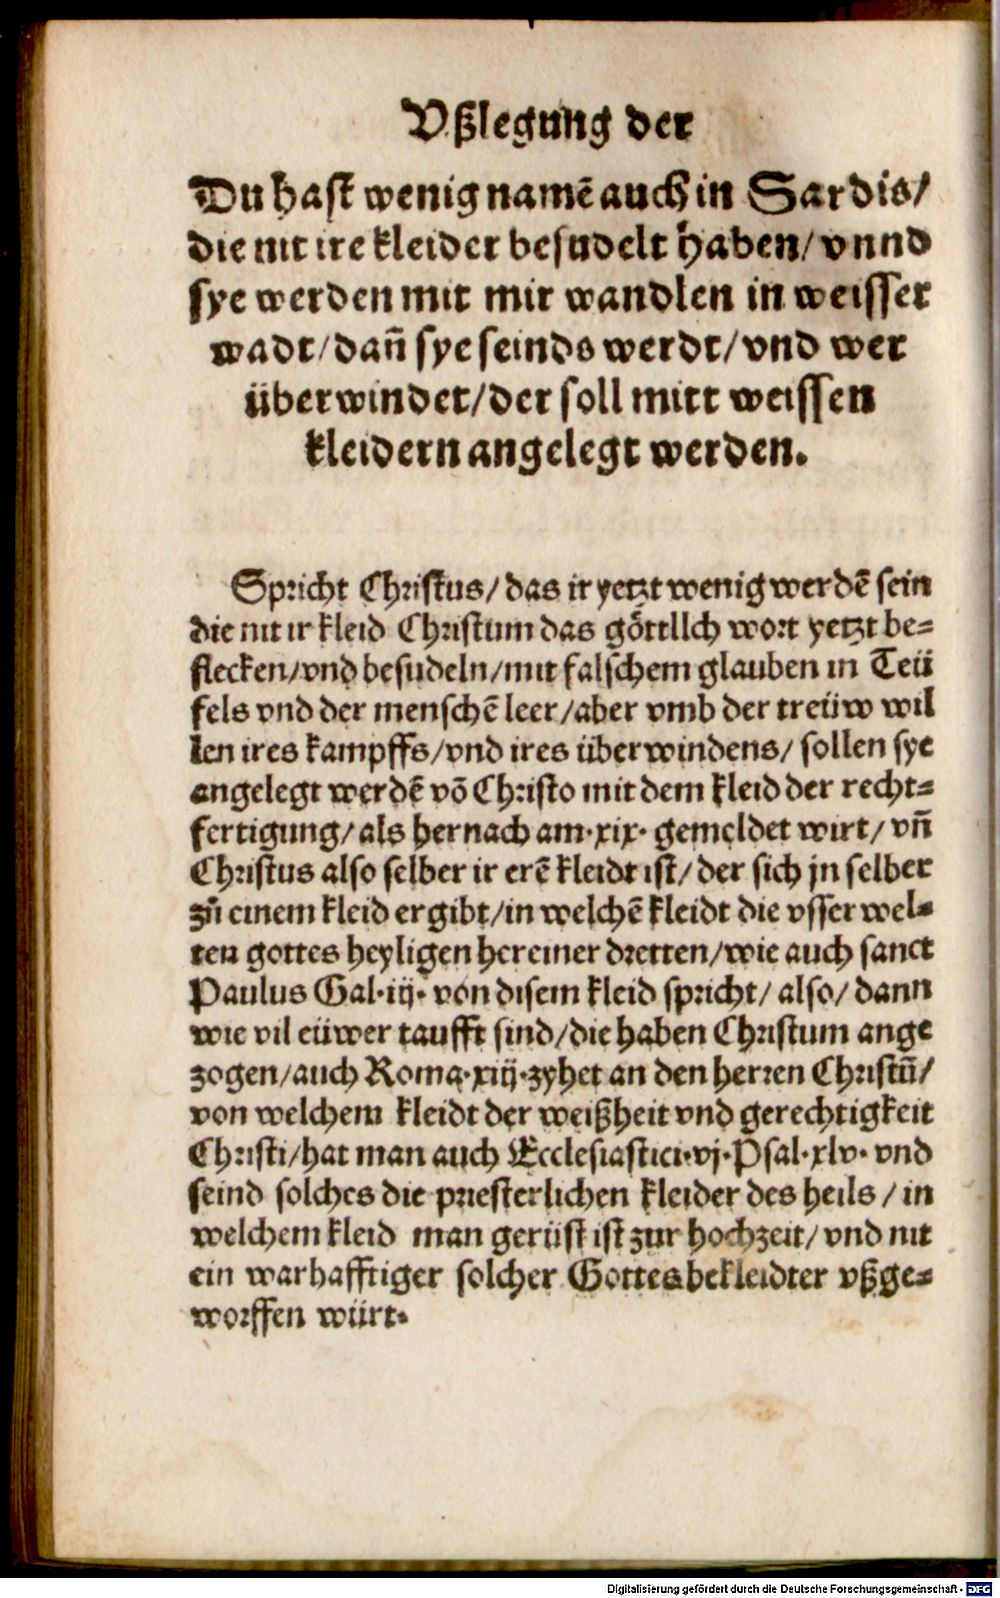 Vßlegung der
Du hast wenig namē auch in Sardis/
die nit ire kleider besudelt haben/ vnnd
sye werden mit mir wandlen in weisser
wadt/ dañ sye seinds werdt/ vnd wer
überwindet/ der soll mitt weissen
kleidern angelegt werden.
Spricht Christus/ das ir yetzt wenig werdē sein
die nit ir kleid Christum das göttllch wort yetzt be=
flecken/ vnd besudeln/ mit falschem glauben in Teü
fels vnd der menschē leer/ aber vmb der treüw wil
len ires kampffs/ vnd ires überwindens/ sollen sye
angelegt werdē võ Christo mit dem kleid der recht=
fertigung/ als hernach am·xix· gemeldet wirt/ vñ
Christus also selber ir erē kleidt ist/ der sich jn selber
zů einem kleid ergibt/ in welchē kleidt die vsserwel=
ten gottes heyligen hereiner dretten/ wie auch sanct
Paulus Gal·iij· von disem kleid spricht/ also/ dann
wie vil eüwer taufft sind/ die haben Christum ange
zogen/ auch Roma·xiij·zyhet an den herren Christū/
von welchem kleidt der weißheit vnd gerechtigkeit
Christi/ hat man auch Ecclesiastici·vj·Psal·xlv· vnd
seind solches die priesterlichen kleider des heils/ in
welchem kleid man gerüst ist zur hochzeit/ vnd nit
ein warhafftiger solcher Gottesbekleidter vßge=
worffen würt·
Digitalisierung gefördert durch die Deutsche Forschungsgemeinschaft - DFG